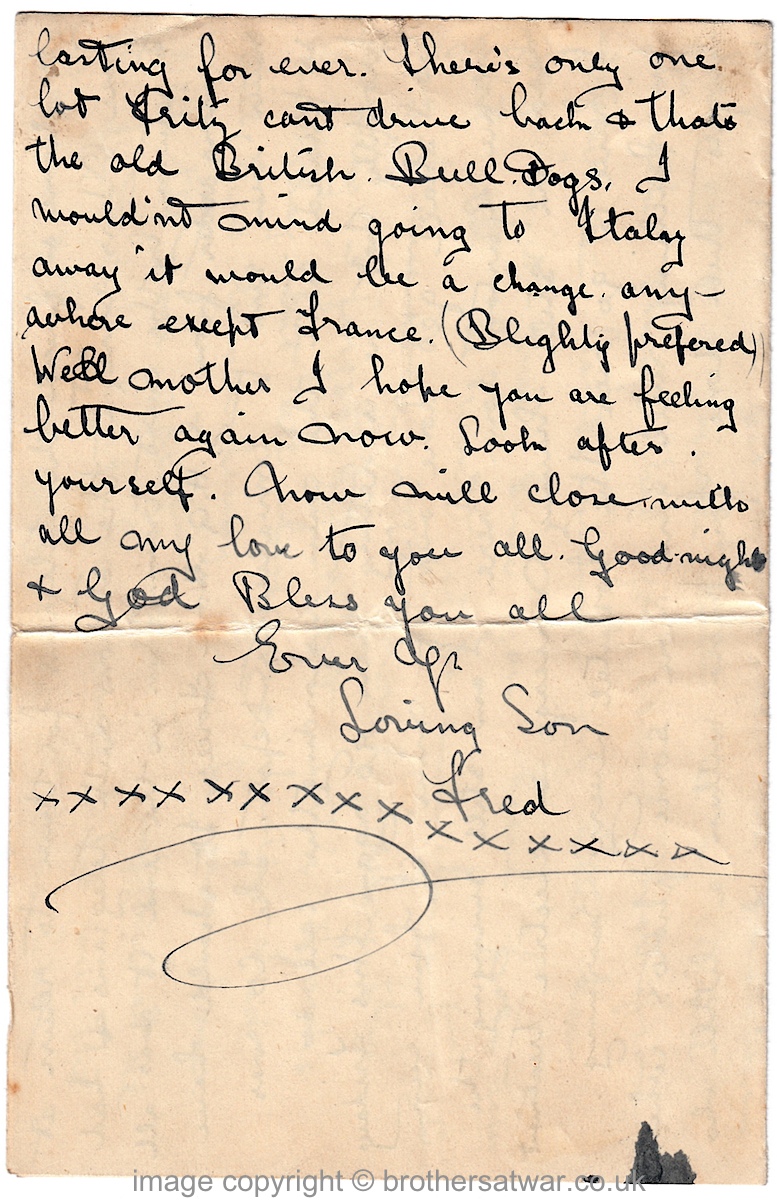 lasting for ever. there's only one
lot Fritz cant drive back & thats
the old British. Bull. Dogs. I
wouldn't mind going to Italay
away it would be a change. any-
where except France. (Blighty prefered)
Well mother I hope you are feeling
better again now. Look after.
yourself. Now will close with
all my love to you all. Good-night
+ God Bless you all
Ever Yr
Loving Son
Fred
x x x x x x x x x x x x x x x
image copyright © brothersatwar.co.uk